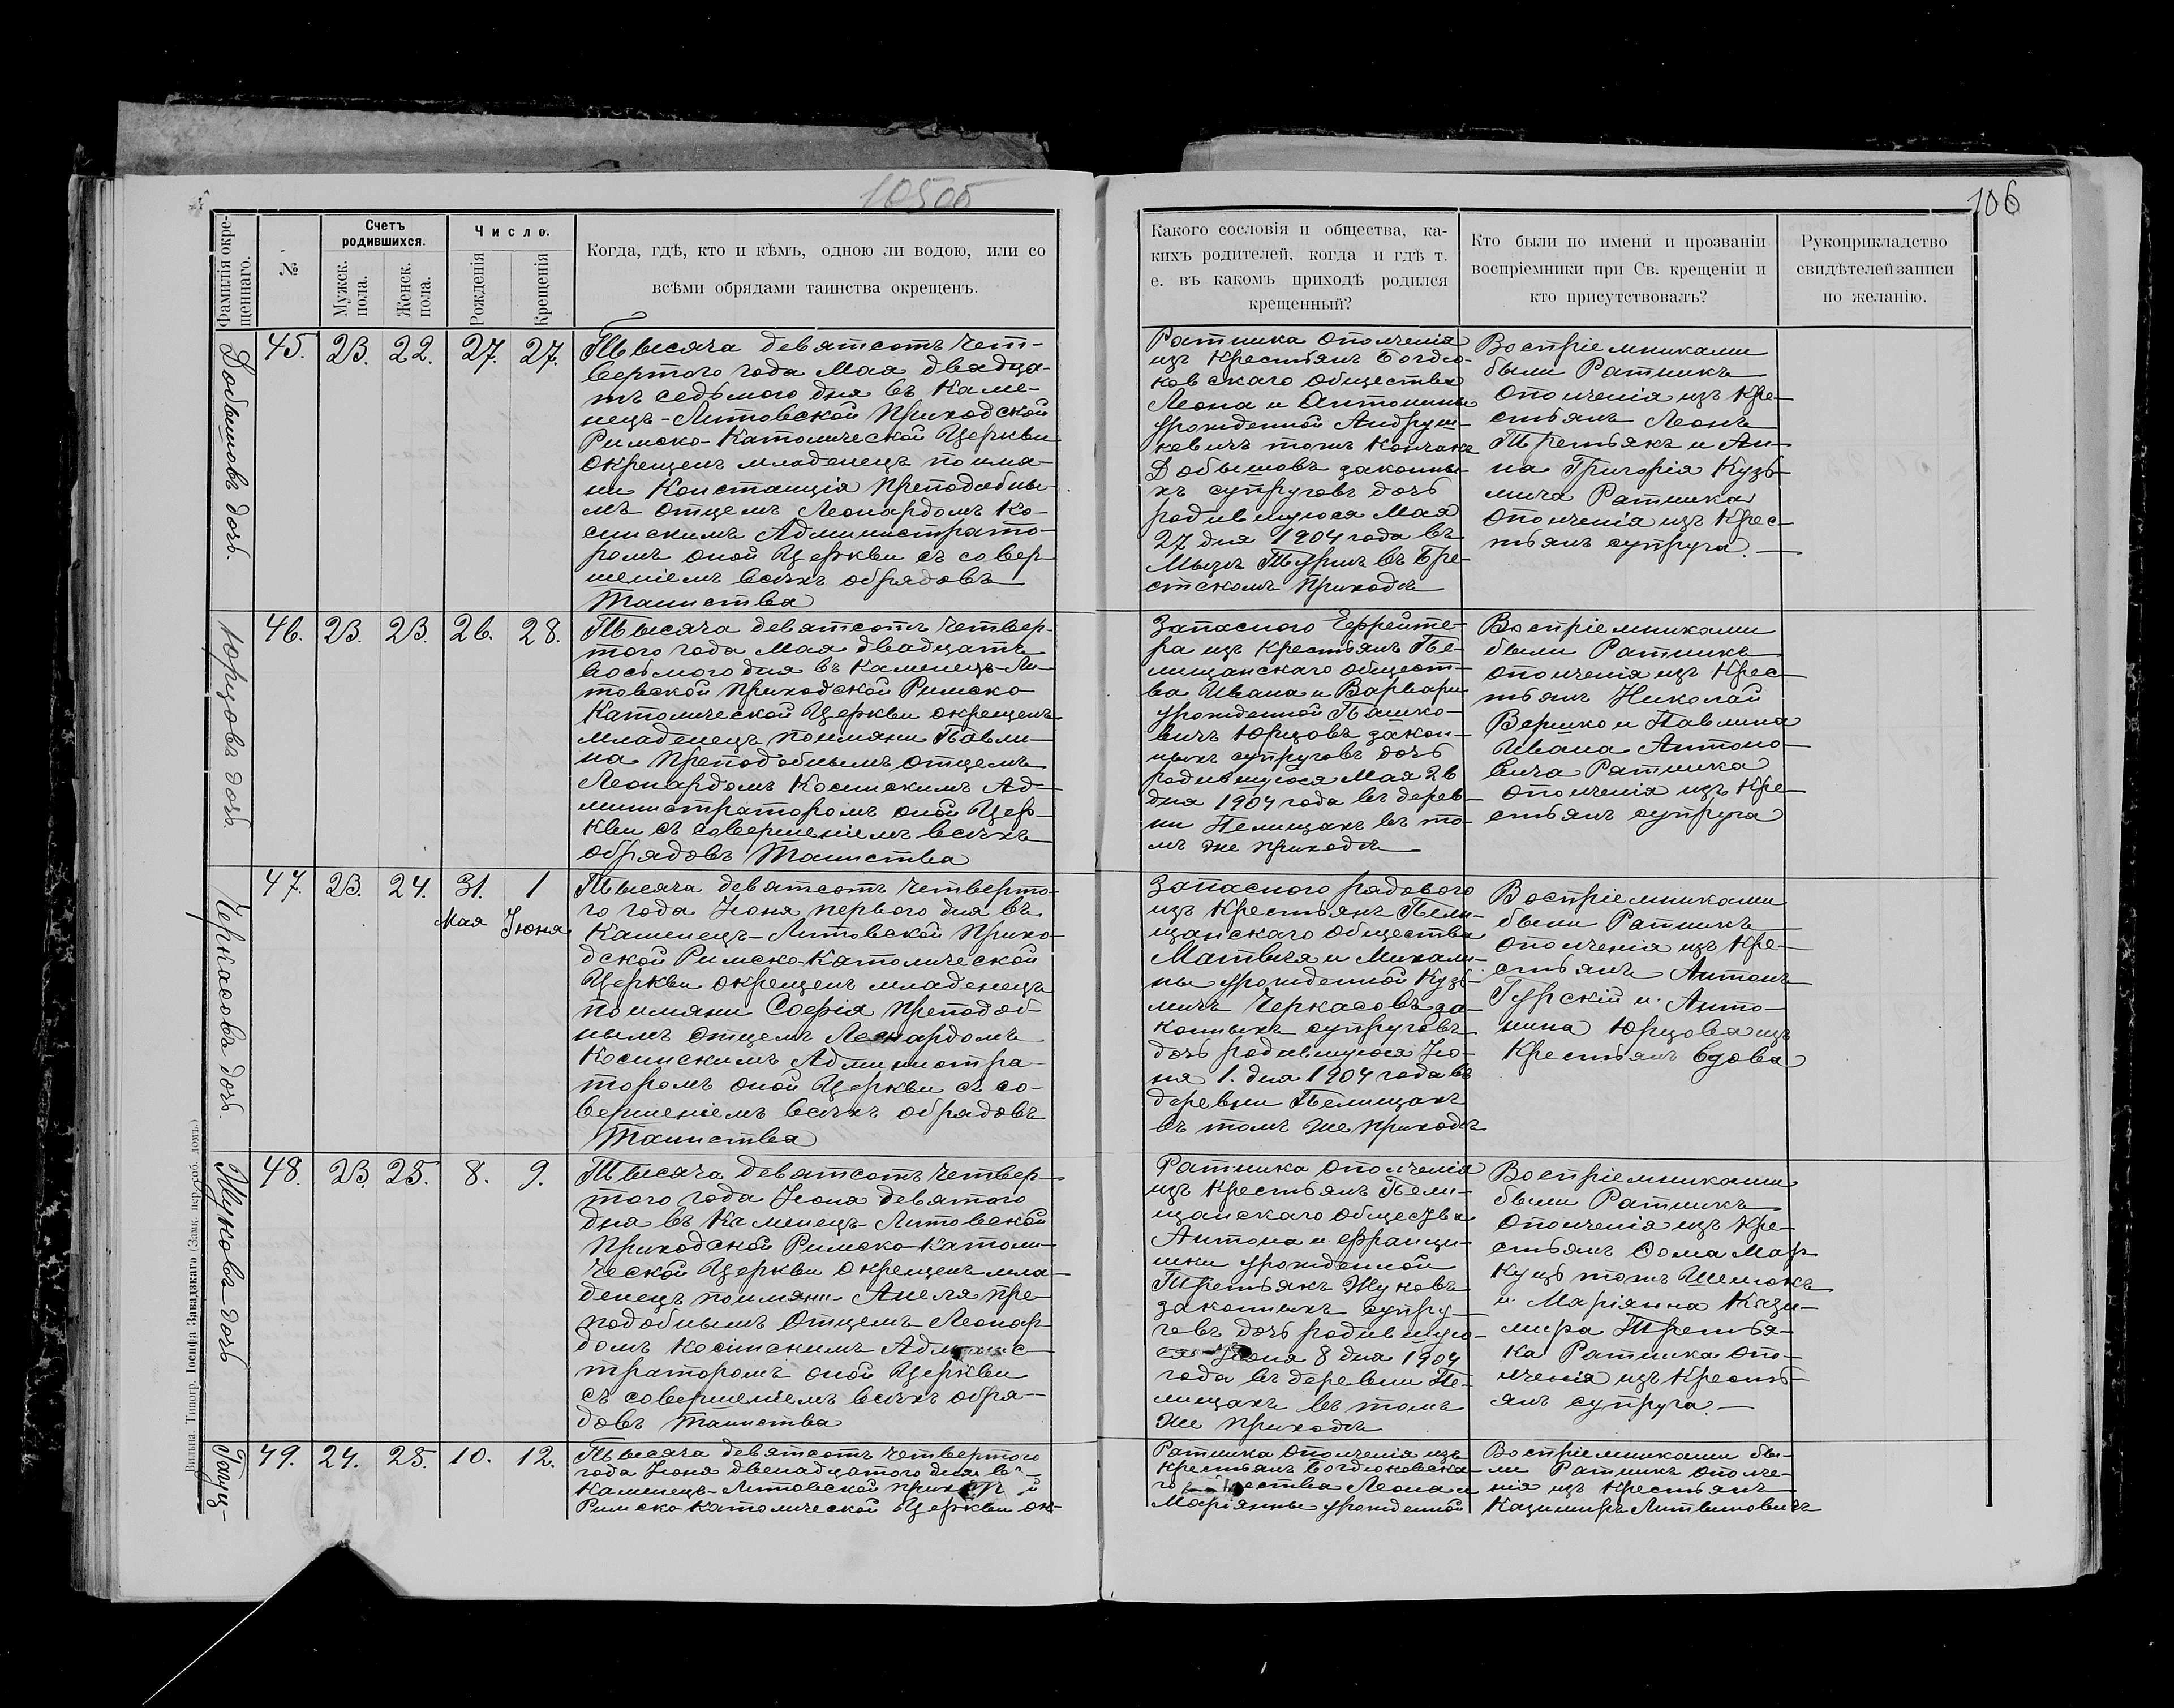 10505
106
Фамилія окре-
щеннаго.
№
Счетъ
родившихся.
Мужск.
пола.
Женск.
пола.
Число.
Рожденія
Крещенія
Когда, гдѣ, кто и кѣмъ, одною ли водою, или со
всѣми обрядами таинства окрещенъ.
Какого сословія и общества, ка-
кихъ родителей, когда и гдѣ т.
е. въ какомъ приходѣ родился
крещенный?
Кто были по имени и прозваніи
воспріемники при Св. крещеніи и
кто присутствовалъ?
Рукоприкладство
свидѣтелей записи
по желанію.
Добышовъ дочь.
45. 23. 22. 27. 27.
Тысяча девятсотъ чет-
вертого года Мая двадца-
ть седьмого дня въ Каме-
нецъ-Литовской Приходской
Римско-Католической Церкви
окрещенъ младенецъ по имя-
ни Констанція Преподобны-
мъ Отцемъ Леонардомъ Ко-
синскимъ Администрато-
ромъ оной Церкви съ совер-
шеніемъ всѣхъ обрядовъ
Таинства
Ратника ополченія
изъ Крестьянъ Богдю-
ковскаго Общества
Леона и Антонины
урожденной Андруш-
кевичъ тожъ Кончака
Добышовъ законны-
хъ супруговъ дочь
родившуюся Мая
27 дня 1904 года въ
Мызѣ Туринъ въ Бре-
стскомъ Приходѣ
Воспріемниками
были Ратникъ
Ополченія изъ Кре-
стьянъ Леонъ
Третьякъ и Ан-
на Григорія Кузь-
мича Ратника
Ополченія изъ Крес-
тьянъ супруга.
Юрцовъ дочь.
46. 23. 23. 26. 28.
Тысяча девятсотъ четвер-
того года Мая двадцать
восьмого дня въ Каменецъ-Ли-
товской приходской Римско
Католической Церкви окрещенъ
младенецъ поимяни Павли-
на Преподобнымъ отцемъ
Леонардомъ Косинскимъ Ад-
министраторомъ оной Цер-
кви съ совершеніемъ всѣхъ
обрядовъ Таинства
Запасного Ефрейто-
ра изъ Крестьянъ Пе-
лищанскаго общест-
ва Ивана и Варвары
урожденной Пашко-
вичъ Юрцовъ закон-
ныхъ супруговъ дочь
родившуюся Мая 26
дня 1904 года въ дерев-
ни Пелищахъ въ то-
мъ же приходѣ
Воспріемниками
были Ратникъ
ополченія изъ Крес-
тьянъ Николай
Вершко и Павлина
Ивана Антоно-
вича Ратника
Ополченія изъ Кре-
стьянъ супруга
Черкасовъ дочь.
47. 23. 24. 31. 1
Мая Іюня
Тысяча девятсотъ четверто-
го года Іюня первого дня въ
Каменецъ-Литовской Прихо-
дской Римско-Католической
Церкви окрещенъ младенецъ
поимяни Софія Преподоб
нымъ отцемъ Леонардомъ
Косинскимъ Администра-
торомъ оной Церкви съ со-
вершеніемъ всѣхъ обрядовъ
Таинства
Запасного рядового
изъ Крестьянъ Пели-
щанскаго Общества
Матвѣя и Михали-
ны урожденной Кузь-
мичъ Черкасовъ за-
конныхъ супруговъ
дочь родившуюся Ію-
ня 1. дня 1904 года въ
деревни Пелищахъ
въ томъ же приходѣ
Воспріемниками
были Ратникъ
Ополченія изъ Кре-
стьянъ Антонъ
Гурскій и Анто-
нина Юрцова изъ
Крестьянъ вдова
Жуковъ дочь
48. 23. 25. 8. 9.
Тысяча девятсотъ четвер-
того года Іюня девятого
дня въ Каменецъ-Литовской
Приходской Римско-Католи-
ческой Церкви окрещенъ мла-
денецъ поимяни Анеля Пре-
подобнымъ Отцемъ Леонар-
домъ Косинскимъ Админис-
траторомъ оной Церкви
съ совершеніемъ всѣхъ обря-
довъ таинства
Ратника ополченія
изъ Крестьянъ Пели-
щанскаго Общества
Антона и Франци-
шки урожденной
Третьякъ Жуковъ
законныхъ супру-
говъ дочь родившую-
ся Іюня 8 дня 1904
года въ деревни Пе-
лищахъ въ томъ
же приходѣ
Воспріемниками
были Ратникъ
Ополченія изъ Кре-
стьянъ Ѳома Мар-
куцъ тожъ Шеметъ
и Маріянна Кази-
мира Третья-
ка Ратника Опо-
лченія изъ Кресть-
янъ супруга.
49. 24. 25. 10. 12.
Тысяча девятсотъ четвертого
года Іюня двенадцатого дня въ
Каменецъ-Литовской
Римско-Католической Церкви ок-
Ратника Ополченія изъ
Крестьянъ Богдюковска-
го Леона и
Маріянны урожденной
Воспріемниками бы-
ли Ратникъ ополче-
нія изъ Крестьянъ
Казимиръ Литвиновичъ
Вильна. Типогр. Іосифа Завадзкаго (Замк. пер. соб. домъ.)